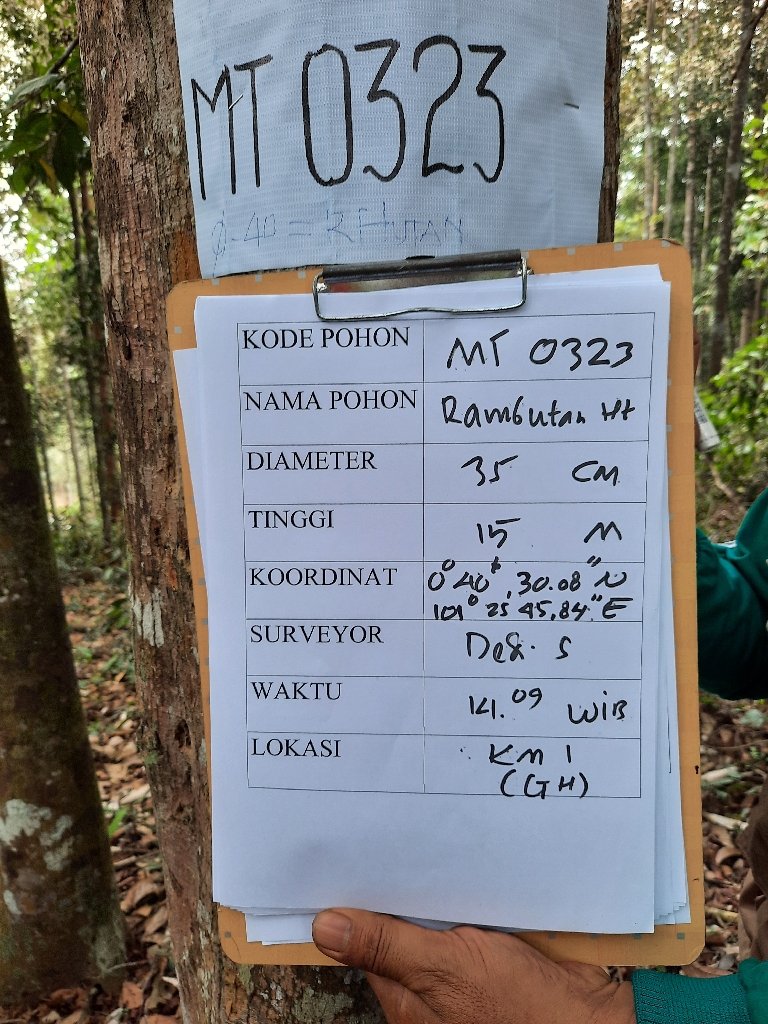 MT 0323
Ø-40 = R HUTAN
KODE POHON MT 0323
NAMA POHON Rambutan Ht
DIAMETER 35 CM
TINGGI 15 M
KOORDINAT 0° 40' , 30.08" N
101° 25 45,84" E
SURVEYOR S
WAKTU 14.09 WIB
LOKASI KM 1
(GH)